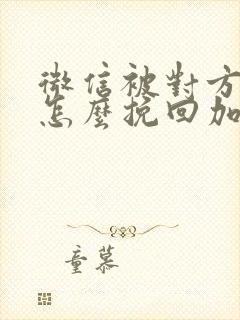 微信被對方
怎麼挽回加
童慕